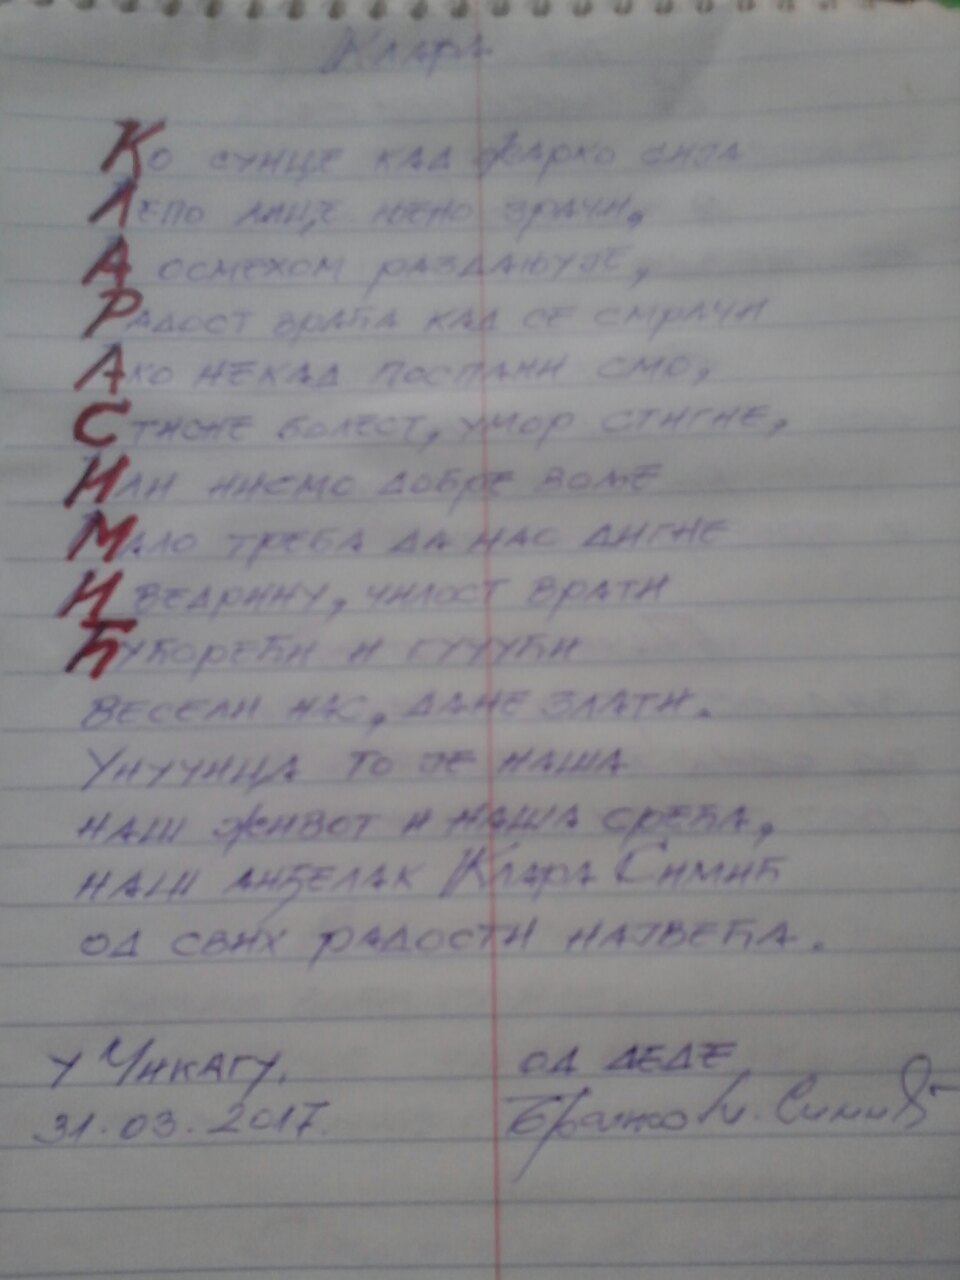 Клара
Ко сунце кад жарко сија
Лепо лице њено зрачи,
А осмехом раздањује,
Радост враћа кад се смрачи
Ако некад поспани смо,
Стисне болест, умор стигне,
Или нисмо добре воље
Мало треба да нас дигне
И ведрину, чилост врати
Ћућорећи и гучући
весели нас, дане злати.
Унучица то је наша
наш живот и наша срећа,
наш анђелак Клара Симић
од свих радости највећа.
у Чикагу,
од деде
31.03.2017.
Бранко М. Симић